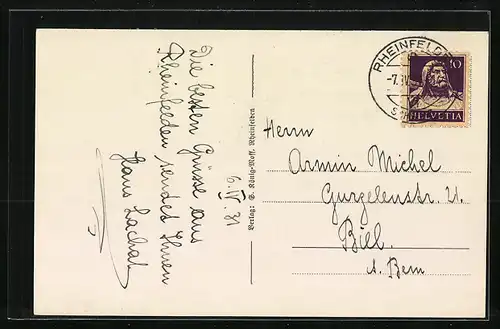 Die besten Grüsse aus
Rheinfelden sendet Ihnen
Hans Lachat
6. IV. 31
Verlag: S. König-Moff, Rheinfelden
RHEINFELDEN
-7. IV
10
HELVETIA
Herrn
Armin Michel
Gurzelenstr. 11
Biel.
Kt. Bern